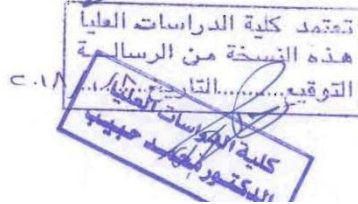 تعتمد كلية الدراسات العليا
هذه النسخة من الرسالة
التوقيع..........التاريخ ١٨/.../٢٠١٨
كلية الدراسات العليا
الدكتور محمد حبيب